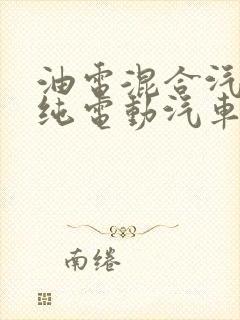 油電混合汽
纯電動汽車
南绻